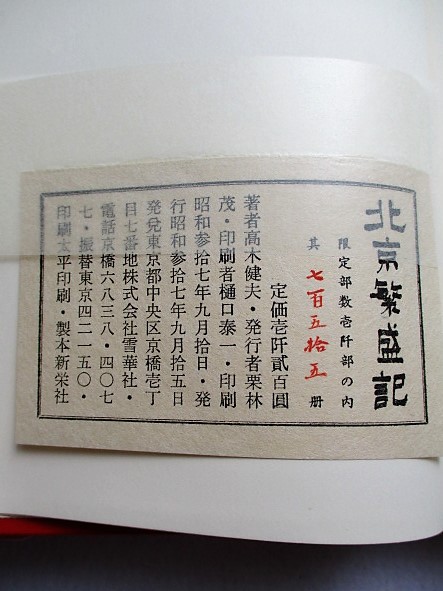 北京繁盛記
限定部数壱阡部の内
其 七百五拾五 册
定価壱阡貳百圓
著者高木健夫・発行者栗林
茂・印刷者樋口泰一・印刷
昭和参拾七年九月拾日・発
行昭和参拾七年九月拾五日
発兌東京都中央区京橋壱丁
目七番地株式会社雪華社・
電話京橋六八三八・四〇七
七・振替東京四二一五〇・
印刷太平印刷・製本新栄社